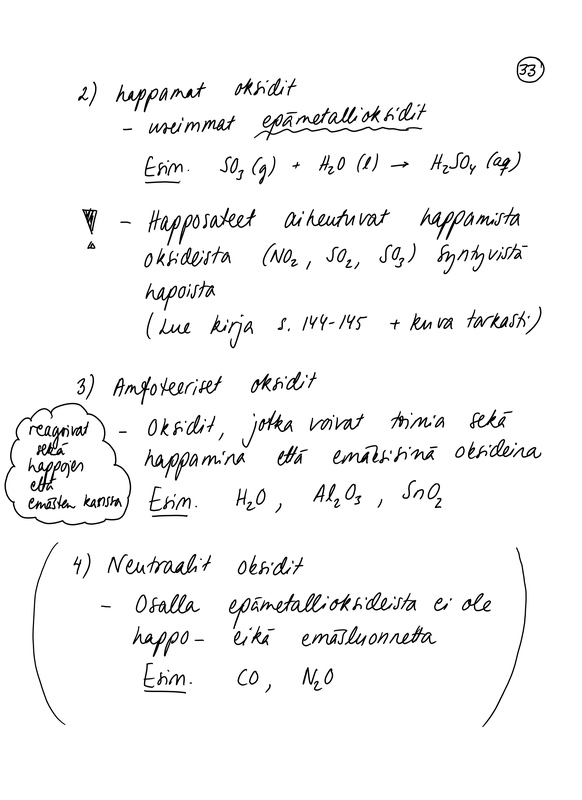 33
2) happamat oksidit
- useimmat epämetallioksidit
Esim. SO₃ (g) + H₂O (l) → H₂SO₄ (aq)
- Happosateet aiheutuvat happamista
oksideista (NO₂, SO₂, SO₃) syntyvistä
hapoista
(Lue kirja s. 144-145 + kuva tarkasti)
3) Amfoteeriset oksidit
- Oksidit, jotka voivat toimia sekä
happamina että emäksisinä oksideina
Esim. H₂O, Al₂O₃, SnO₂
reagoivat
sekä
happojen
että
emästen kanssa
4) Neutraalit oksidit
- Osalla epämetallioksideista ei ole
happo- eikä emäsluonnetta
Esim. CO, N₂O